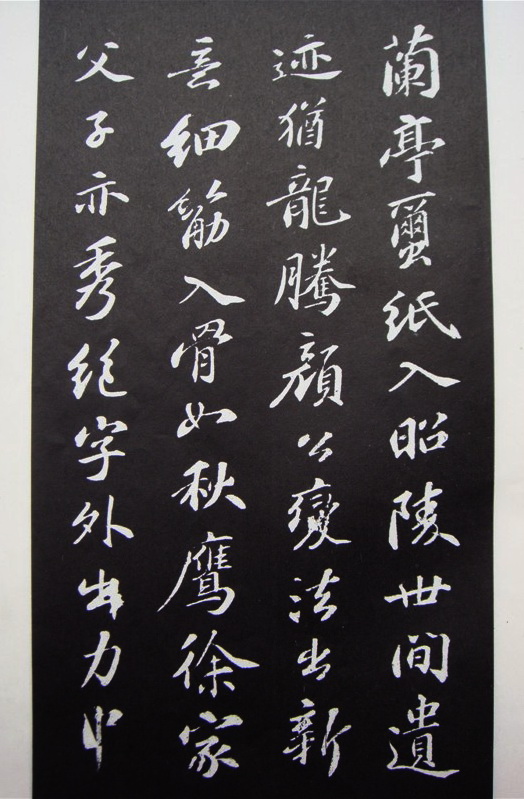 蘭亭蠒紙入昭陵世間遺
迹猶龍騰顏公變法出新
意細筋入骨如秋鷹徐家
父子亦秀絕字外出力中